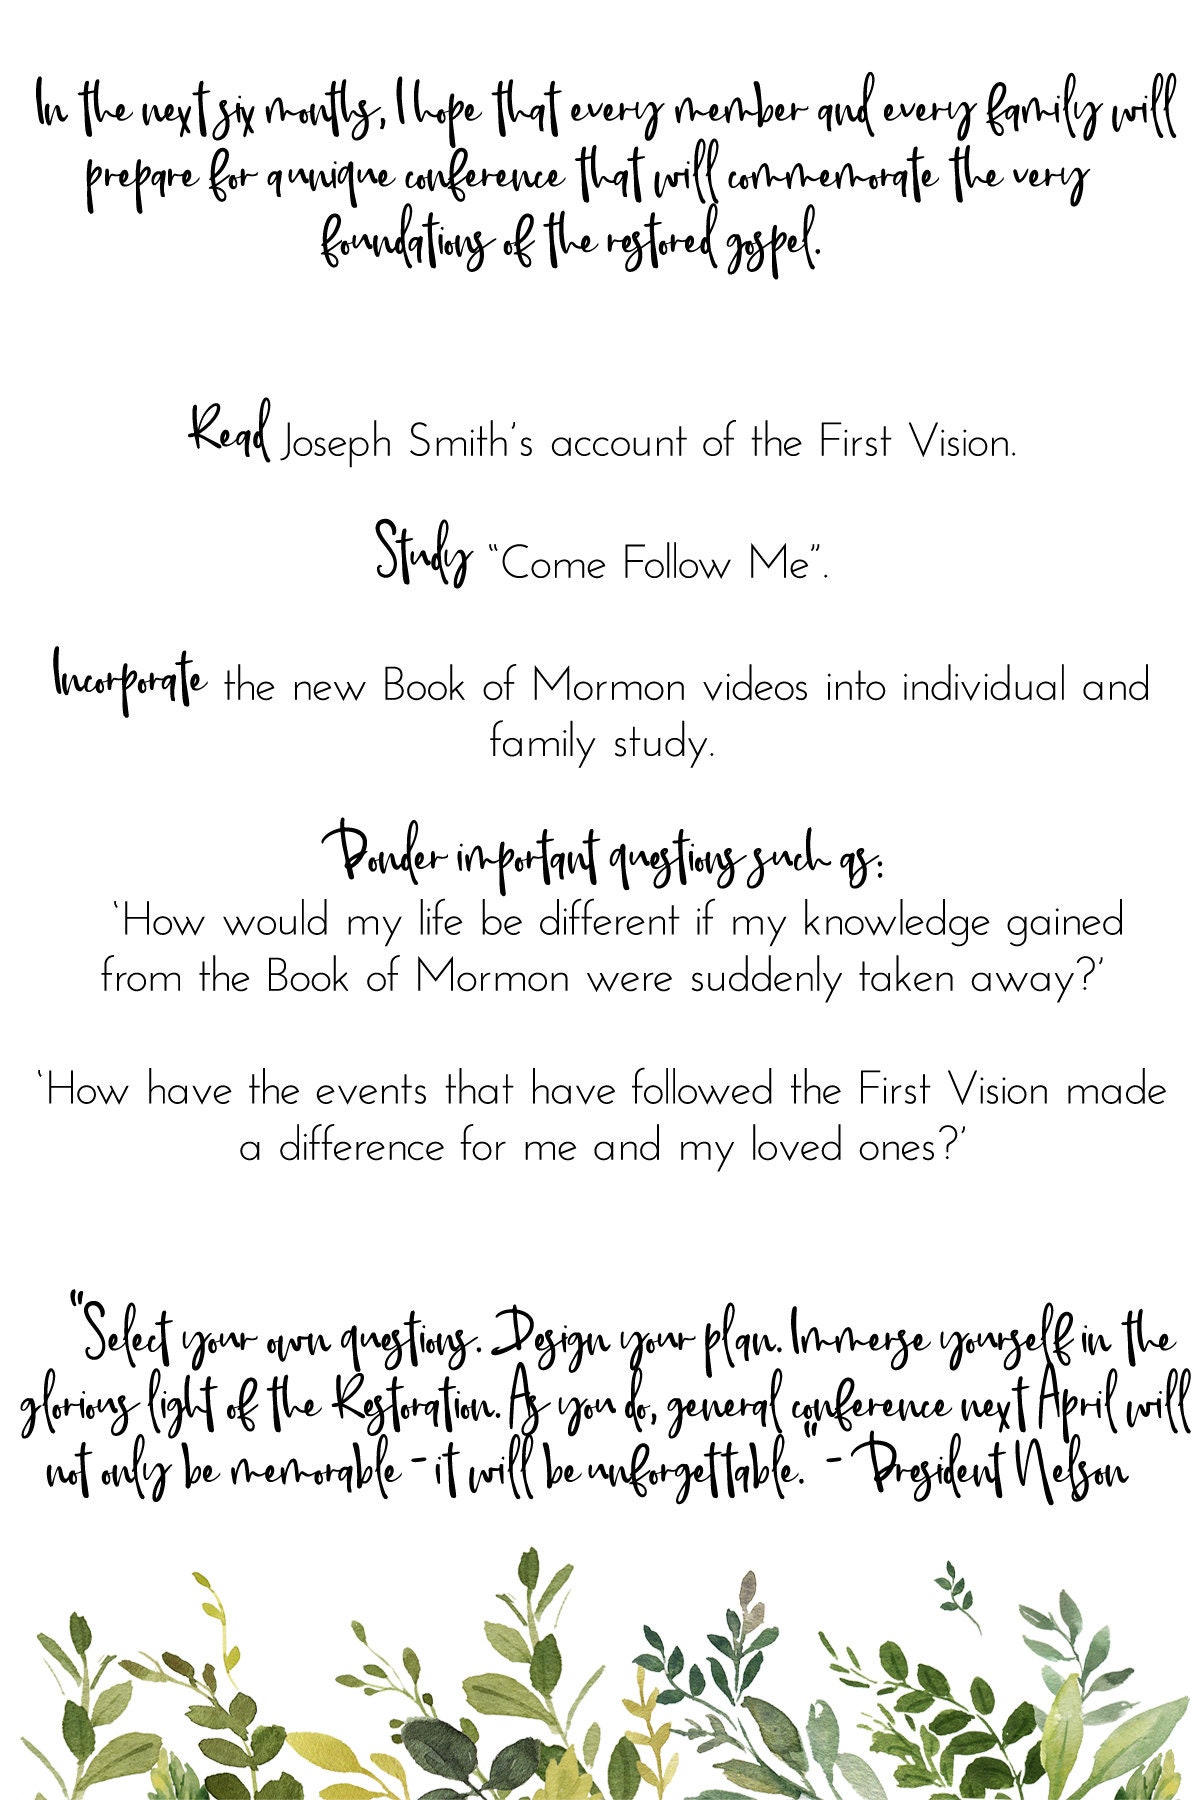 In the next six months, I hope that every member and every family will
prepare for a unique conference that will commemorate the very
foundations of the restored gospel.
Read Joseph Smith's account of the First Vision.
Study “Come Follow Me”.
Incorporate the new Book of Mormon videos into individual and
family study.
Ponder important questions such as:
‘How would my life be different if my knowledge gained
from the Book of Mormon were suddenly taken away?’
‘How have the events that have followed the First Vision made
a difference for me and my loved ones?’
"Select your own questions. Design your plan. Immerse yourself in the
glorious light of the Restoration. As you do, general conference next April will
not only be memorable - it will be unforgettable." - President Nelson